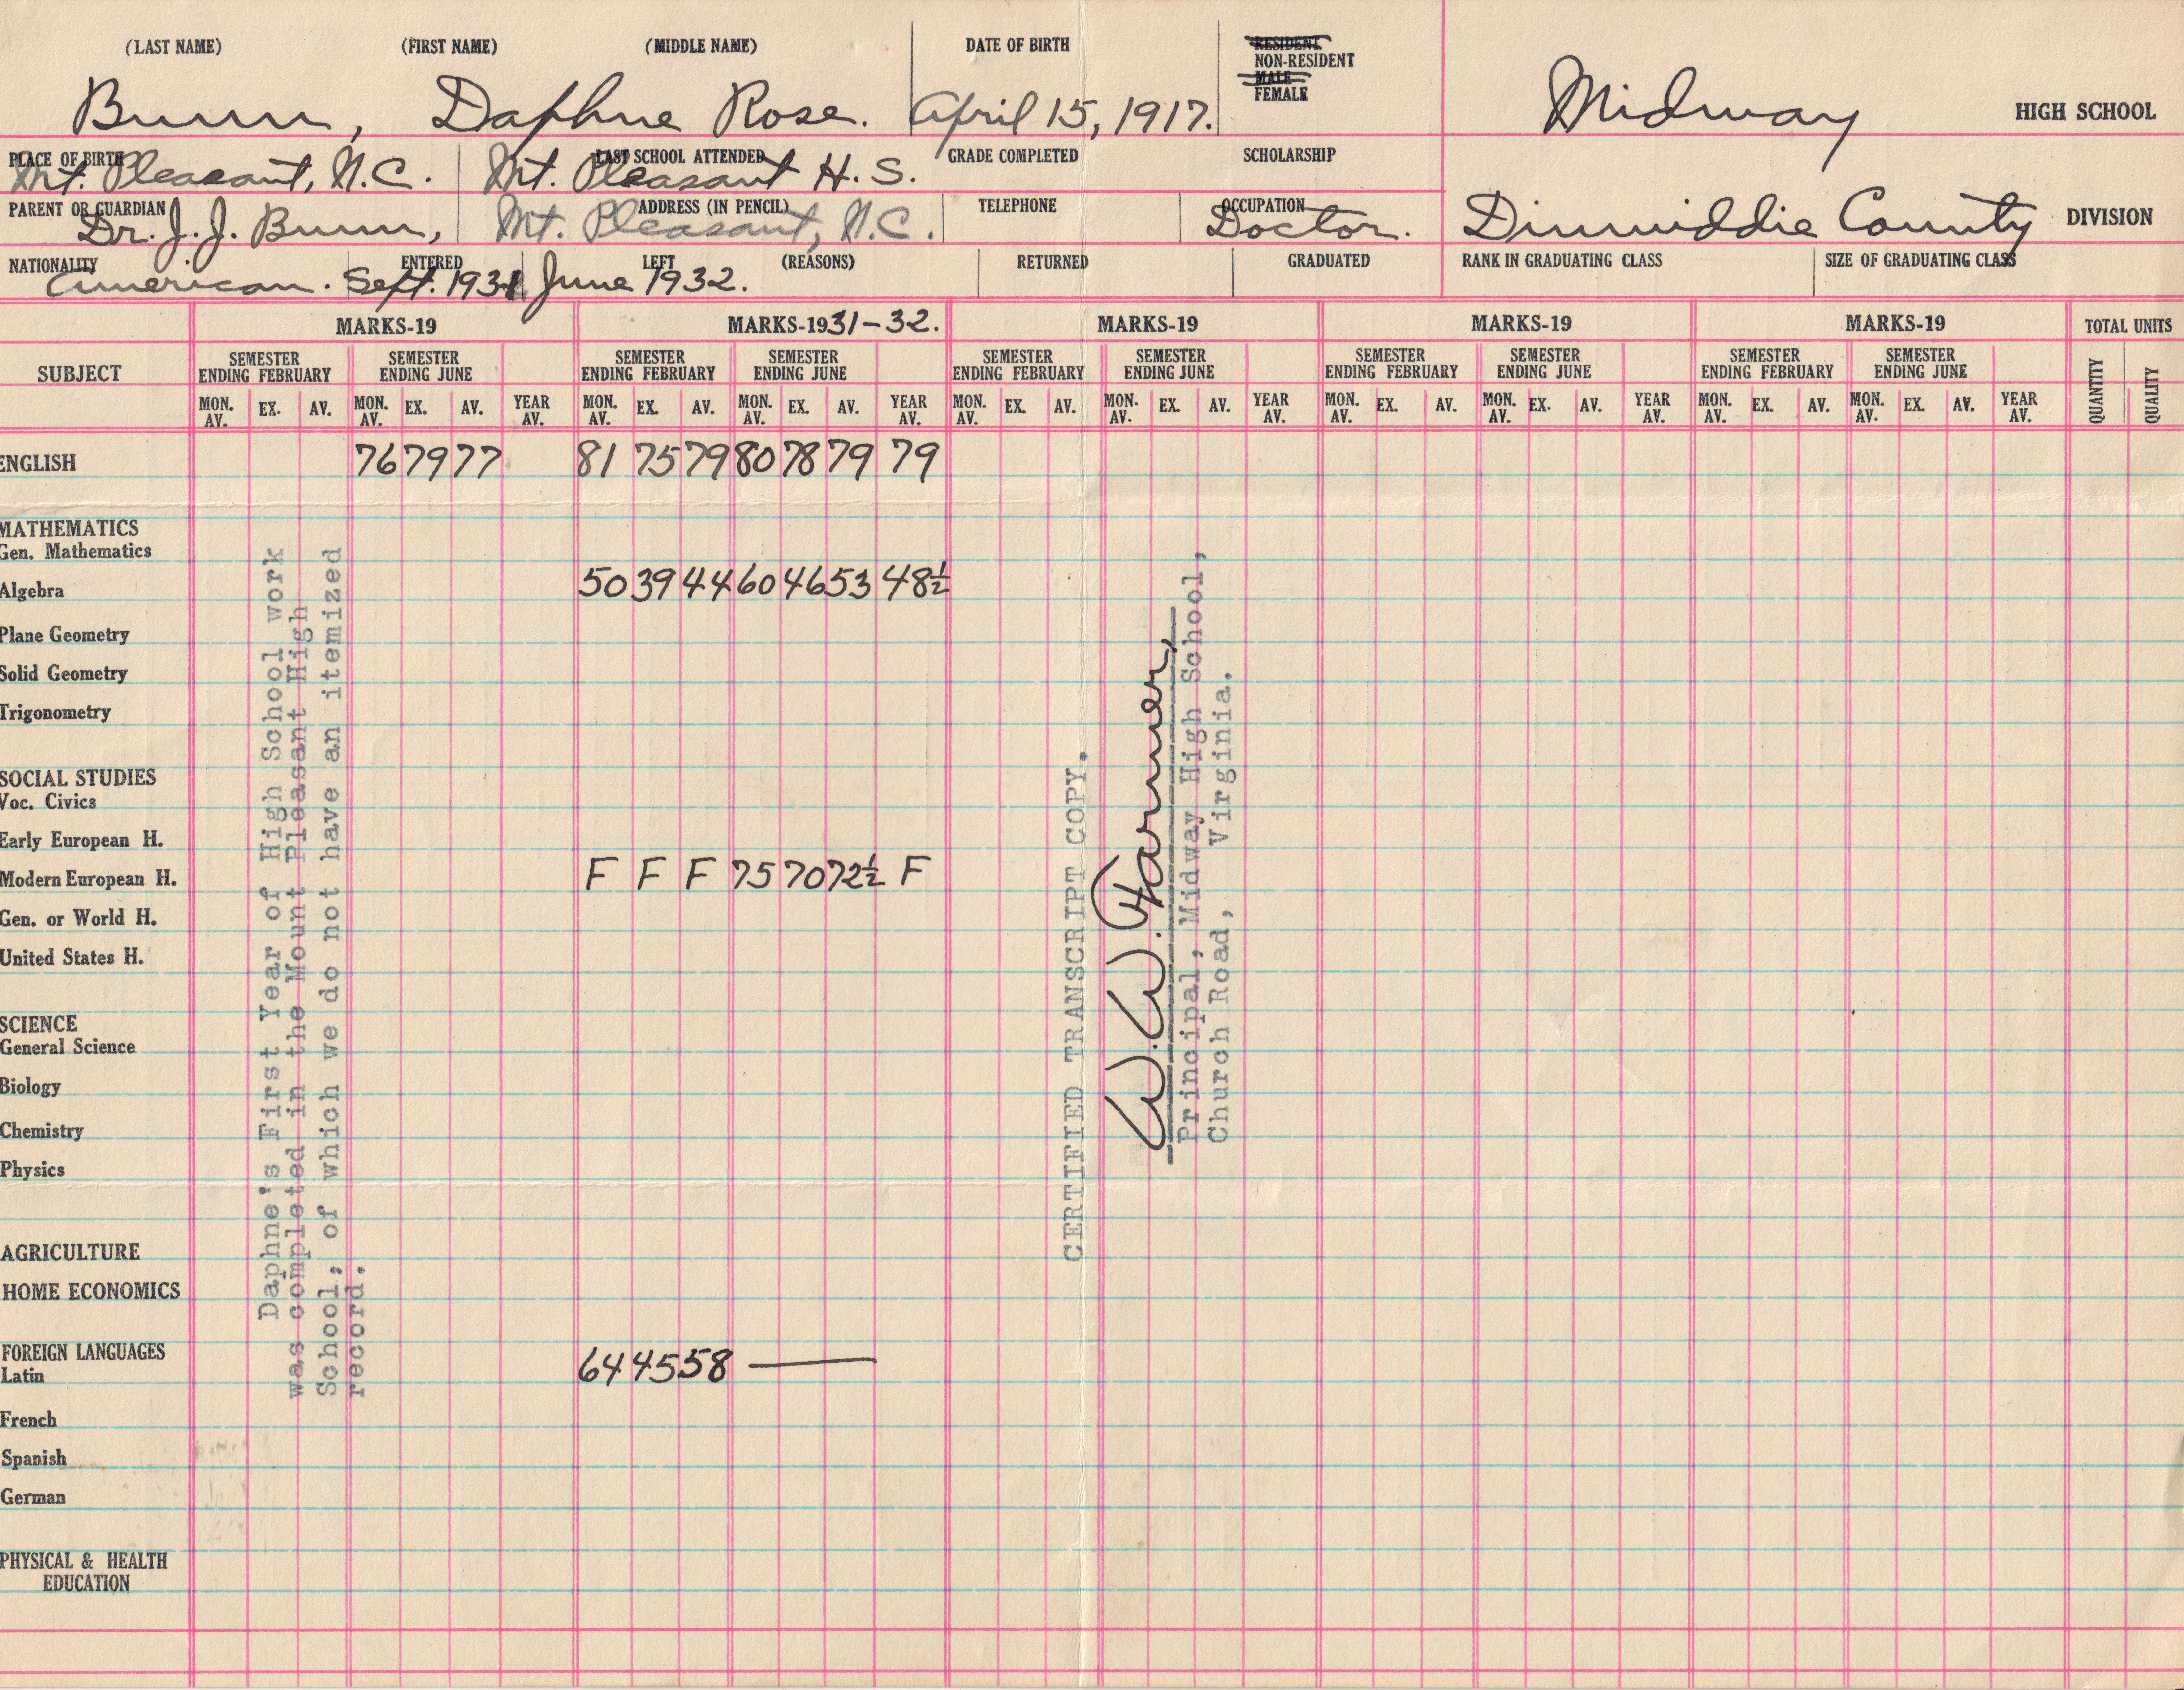 (LAST NAME) (FIRST NAME) (MIDDLE NAME) DATE OF BIRTH RESIDENT
NON-RESIDENT
MALE
FEMALE
Bunn, Daphne Rose. April 15, 1917. Midway HIGH SCHOOL
PLACE OF BIRTH LAST SCHOOL ATTENDED GRADE COMPLETED SCHOLARSHIP
Mt. Pleasant, N.C. Mt. Pleasant H. S.
PARENT OR GUARDIAN ADDRESS (IN PENCIL) TELEPHONE OCCUPATION
Dr. J. J. Bunn, Mt. Pleasant, N.C. Doctor. Dinwiddie County DIVISION
NATIONALITY ENTERED LEFT (REASONS) RETURNED GRADUATED RANK IN GRADUATING CLASS SIZE OF GRADUATING CLASS
American. Sept. 1931 June 1932.
MARKS-19 MARKS-1931-32. MARKS-19 MARKS-19 MARKS-19 TOTAL UNITS
SUBJECT SEMESTER ENDING FEBRUARY SEMESTER ENDING JUNE SEMESTER ENDING FEBRUARY SEMESTER ENDING JUNE SEMESTER ENDING FEBRUARY SEMESTER ENDING JUNE SEMESTER ENDING FEBRUARY SEMESTER ENDING JUNE SEMESTER ENDING FEBRUARY SEMESTER ENDING JUNE QUANTITY QUALITY
MON. AV. EX. AV. MON. AV. EX. AV. YEAR AV. MON. AV. EX. AV. MON. AV. EX. AV. YEAR AV. MON. AV. EX. AV. MON. AV. EX. AV. YEAR AV. MON. AV. EX. AV. MON. AV. EX. AV. YEAR AV. MON. AV. EX. AV. MON. AV. EX. AV. YEAR AV.
ENGLISH 76 79 77 81 75 79 80 78 79 79
MATHEMATICS
Gen. Mathematics
Algebra 50 39 44 60 46 53 48½
Plane Geometry
Solid Geometry
Trigonometry
SOCIAL STUDIES
Voc. Civics
Early European H.
Modern European H. F F F 75 70 72½ F
Gen. or World H.
United States H.
SCIENCE
General Science
Biology
Chemistry
Physics
AGRICULTURE
HOME ECONOMICS
FOREIGN LANGUAGES
Latin 64 45 58 —
French
Spanish
German
PHYSICAL & HEALTH
EDUCATION
Daphne's First Year of High School work
was completed in the Mount Pleasant High
School, of which we do not have an itemized
record.
CERTIFIED TRANSCRIPT COPY.
Principal, Midway High School,
Church Road, Virginia.